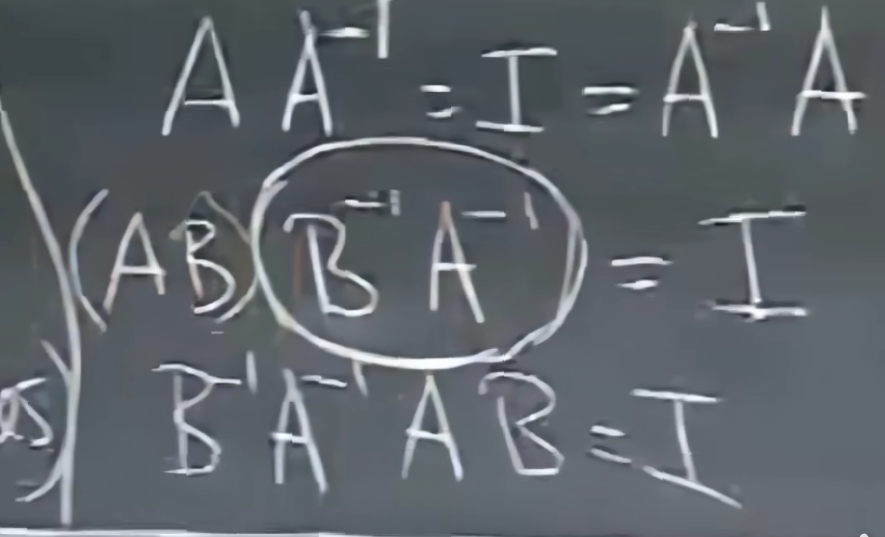 A A⁻¹ = I = A⁻¹ A
(AB) B⁻¹ A⁻¹ = I
B⁻¹ A⁻¹ A B = I